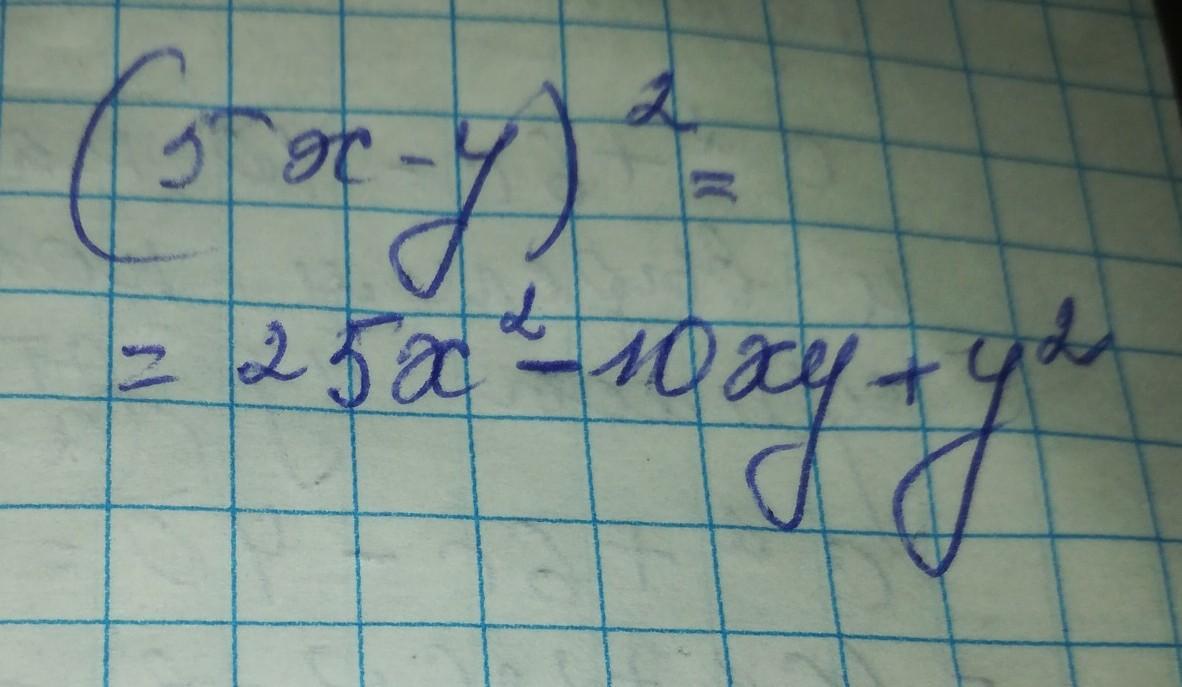 (5x-y)² =
= 25x² - 10xy + y²